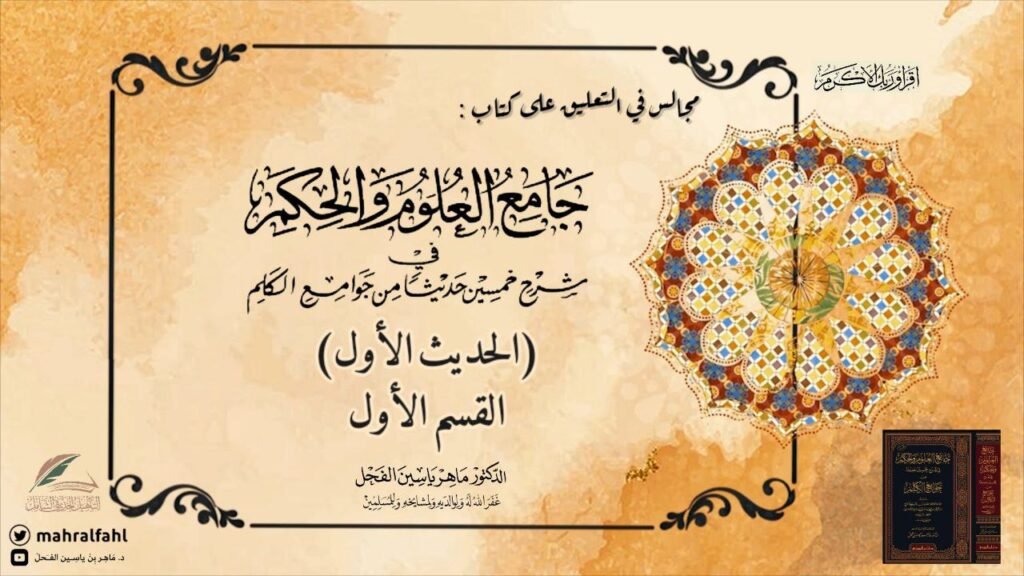 اقرأ وربك الأكرم
مجالس في التعليق على كتاب :
جَامِعُ العُلُومِ وَالحِكَمِ
في
شرح خمسين حديثًا من جوامع الكلم
(الحديث الأول)
القسم الأول
الدكتور ماهر ياسين الفحل
غفر الله له ولوالديه ولمشايخه وللمسلمين
mahralfahl
د. ماهر بن ياسين الفحل
جامع العلوم والحكم
جوامع الكلم